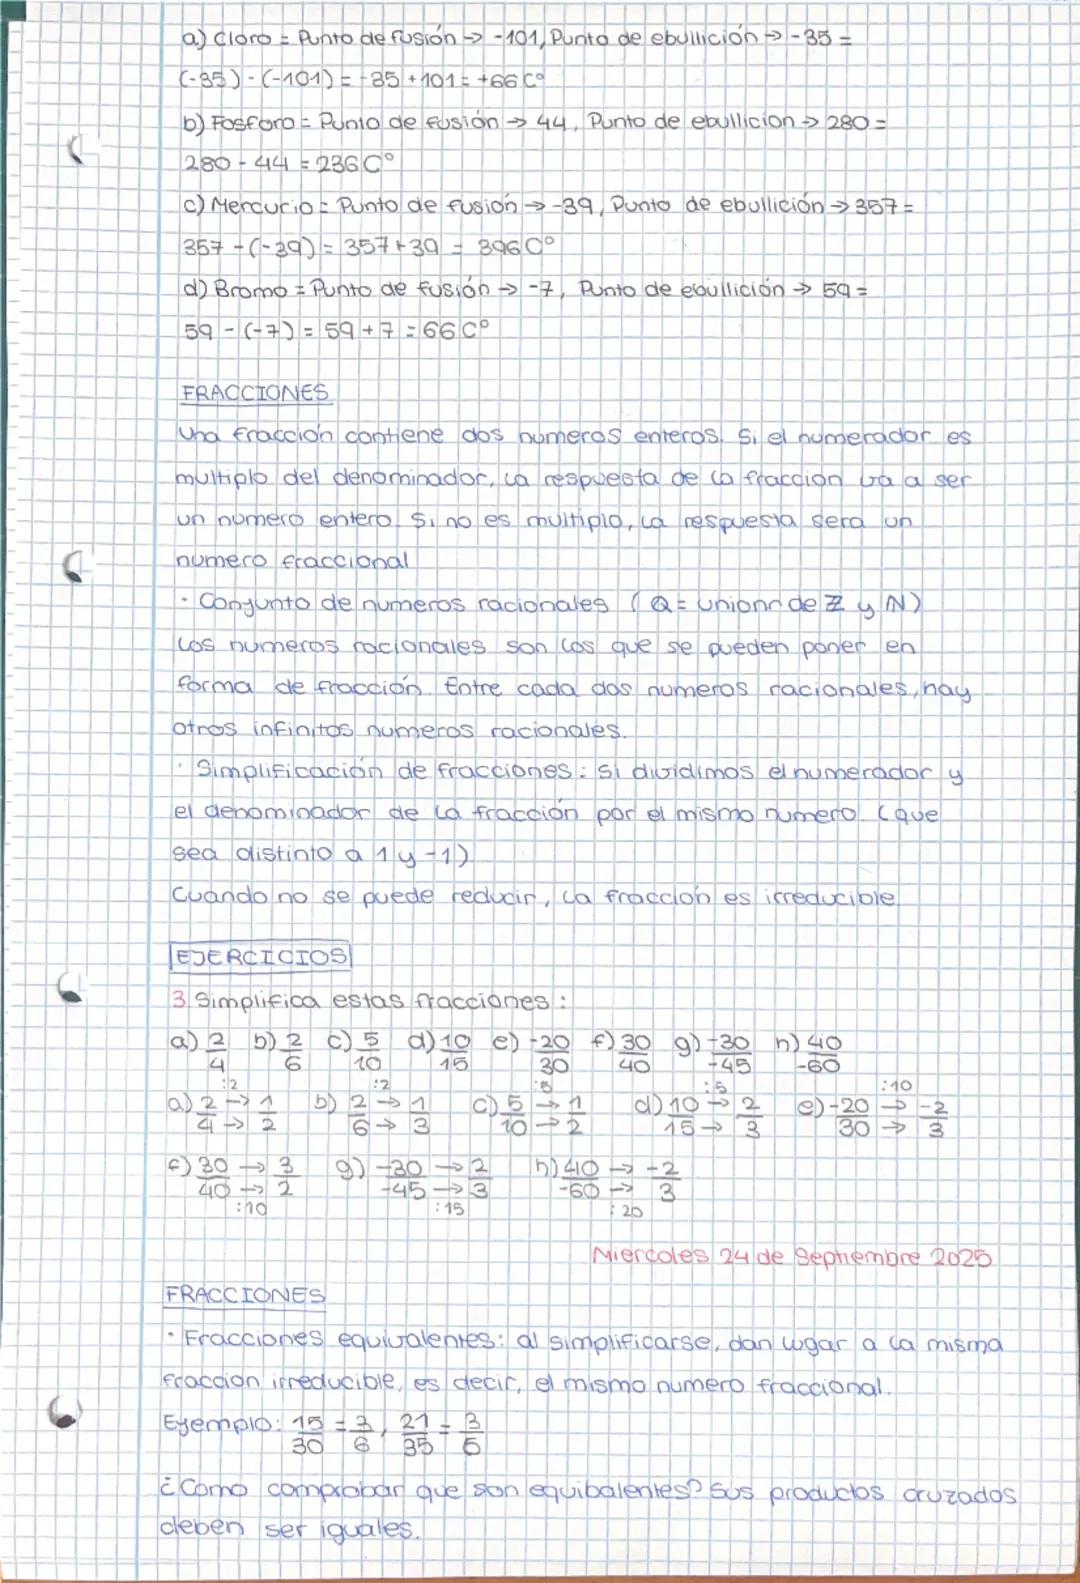 a) Cloro = Punto de fusión → -101, Punto de ebullición → -35 =
(-35) - (-101) = -35 + 101 = +66 Cº
b) Fosforo = Punto de fusión → 44, Punto de ebullicion → 280 =
280 - 44 = 236 Cº
c) Mercurio = Punto de fusión → -39, Punto de ebullición → 357 =
357 - (-39) = 357 + 39 = 396 Cº
d) Bromo = Punto de fusión → -7, Punto de ebullición → 59 =
59 - (-7) = 59 + 7 = 66 Cº
FRACCIONES
Una fracción contiene dos numeros enteros. Si el numerador es
multiplo del denominador, la respuesta de la fraccion va a ser
un numero entero. Si no es multiplo, la respuesta sera un
numero fraccional
· Conjunto de numeros racionales (Q = unionn de Z y N)
Los numeros racionales son los que se pueden poner en
forma de fracción. Entre cada dos numeros racionales, hay
otros infinitos numeros racionales.
· Simplificación de fracciones: si dividimos el numerador y
el denominador de la fracción por el mismo numero (que
sea distinto a 1 y -1)
Cuando no se puede reducir, la fraccion es irreducible.
EJERCICIOS
3 Simplifica estas fracciones:
a) 2/4 b) 2/6 c) 5/10 d) 10/15 e) -20/30 f) 30/40 g) -30/-45 h) 40/-60
a) 2/4 → 1/2 :2 b) 2/6 → 1/3 :2 c) 5/10 → 1/2 :5 d) 10/15 → 2/3 :5 e) -20/30 → -2/3 :10
f) 30/40 → 3/2 :10 g) -30/-45 → 2/3 :15 h) 40/-60 → -2/3 :20
Miercoles 24 de Septiembre 2025
FRACCIONES
· Fracciones equivalentes: al simplificarse, dan lugar a la misma
fraccion irreducible, es decir, el mismo numero fraccional.
Ejemplo: 15/30 = 3/6, 21/35 = 3/5
¿Como comprobar que son equibalentes? Sus productos cruzados
deben ser iguales.